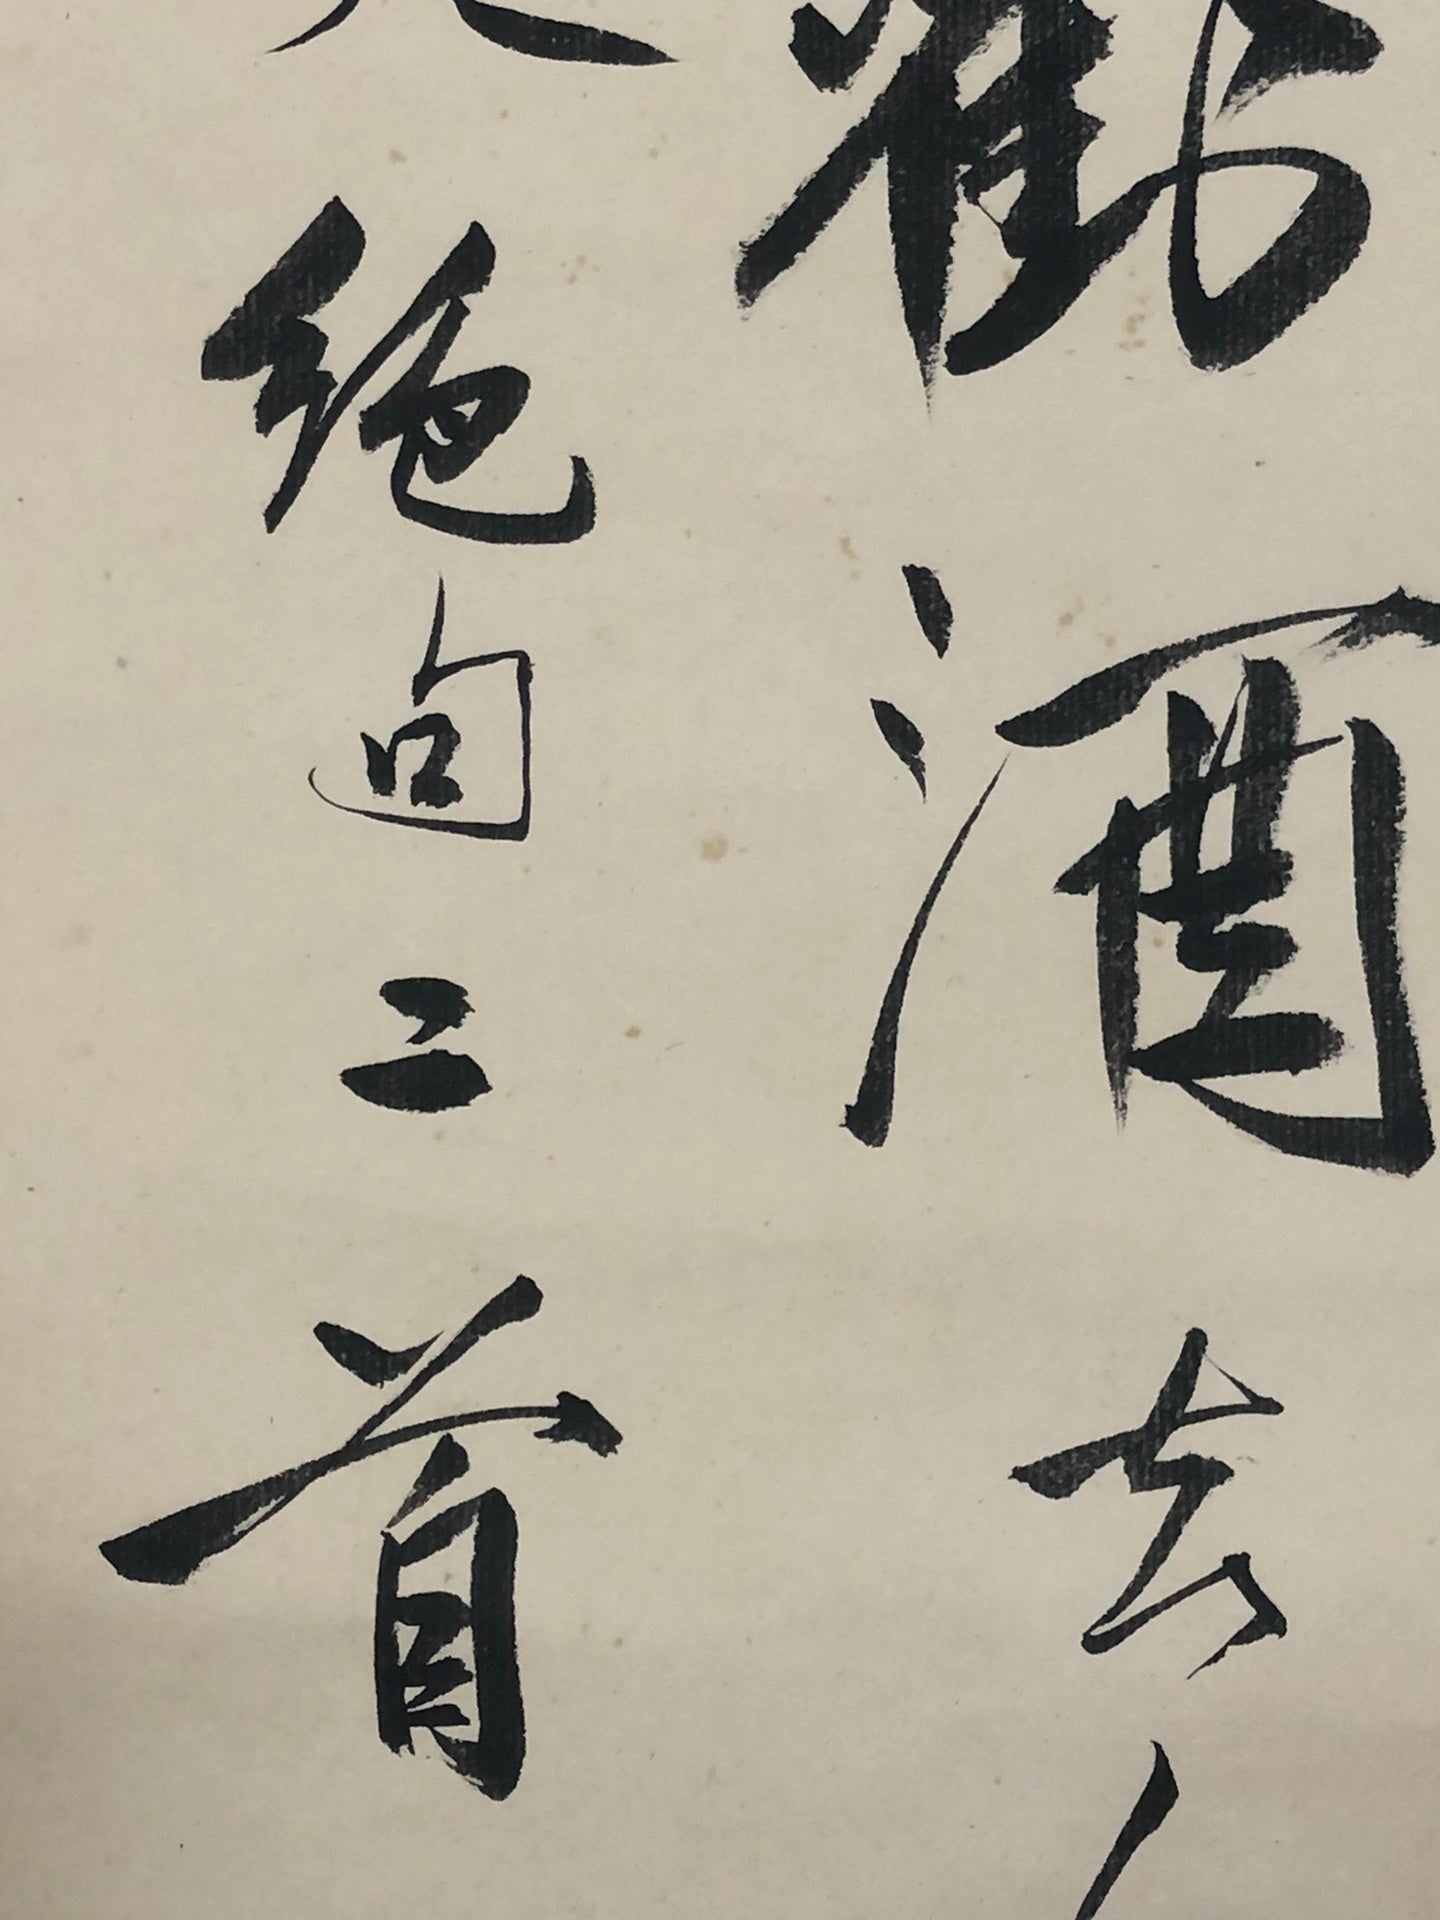 勸酒去
絕句二首